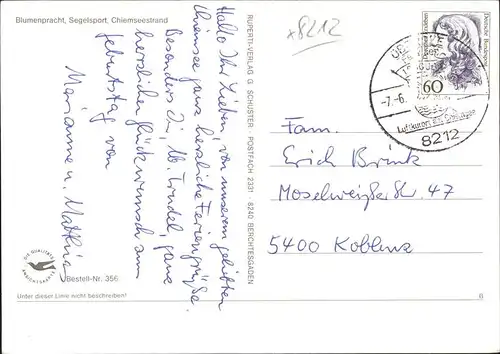 Blumenpracht, Segelsport, Chiemseestrand
Hallo Ihr Lieben, von unserem geliebten
Chiemsee ganz herzliche Feriengrüße.
Besonders Dir, lb. Trudel, ganz
herzlichen Glückwunsch zum
Geburtstag von
Marianne u. Matthias
DIE QUALITÄTS
ANSICHTSKARTE
Bestell-Nr. 356
Unter dieser Linie nicht beschreiben!
RUPERTI-VERLAG G. SCHUSTER POSTFACH 2331 8240 BERCHTESGADEN
x8212
Deutsche Bundespost
60
-7.-6.
Luftkurort am Chiemsee
8212
Fam.
Erich Brink
Moselweißer Str. 47
5400 Koblenz
6